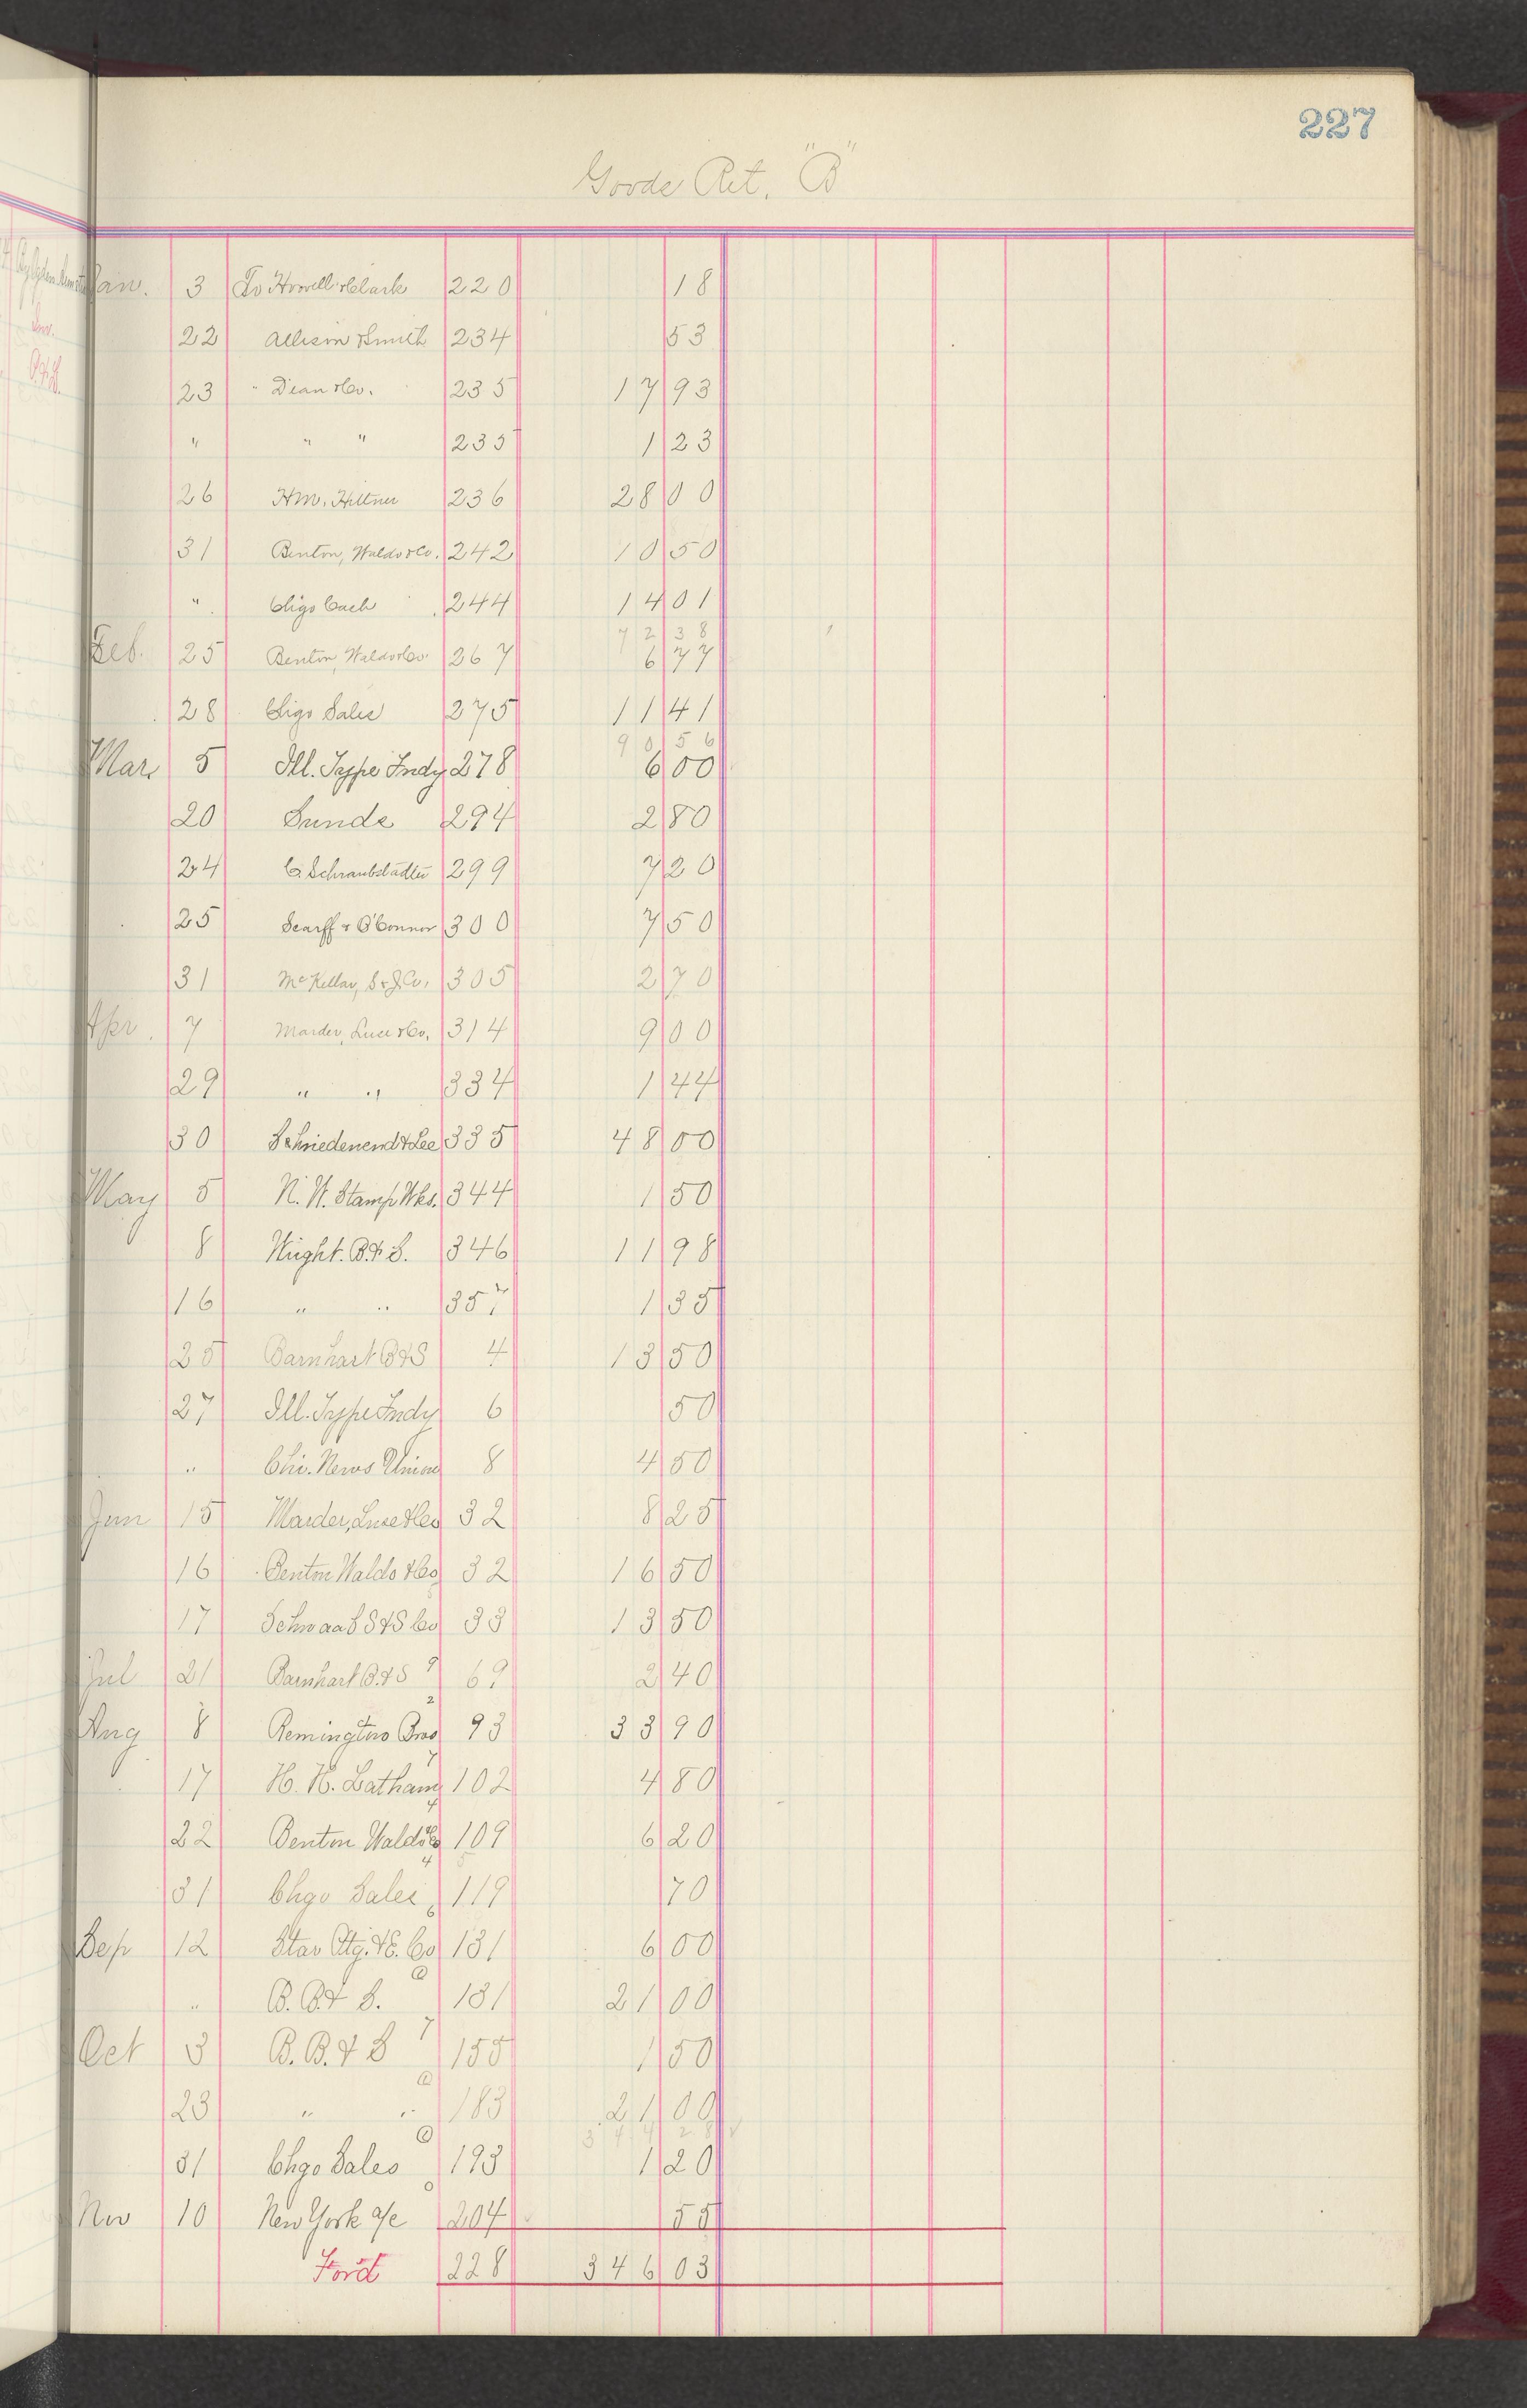 227
Goods Ret. "B"
Jan. 3 To Howell & Clark 220 18
22 Allison & Smith 234 53
23 " Dean & Co. 235 17 93
" " " 235 1 23
26 H.M. Hiltner 236 28 00
31 Benton, Waldo & Co. 242 10 50
" Chgo Cash 244 14 01
72 38
Feb. 25 Benton, Waldo & Co. 267 6 77
28 Chgo Sales 275 11 41
90 56
Mar. 5 Ill. Type Fndy 278 6 00
20 Sunds 294 2 80
24 C. Schraubstadter 299 7 20
25 Scarff & O'Connor 300 7 50
31 McKellar, S. & J. Co. 305 2 70
Apr. 7 Marder, Luse & Co. 314 9 00
29 " " 334 1 44
30 Schniedewend & Lee 335 48 00
May 5 N. W. Stamp Wks. 344 1 50
8 Wright. B. & S. 346 11 98
16 " " 357 1 35
25 Barnhart B & S 4 13 50
27 Ill. Type Fndy 6 50
" Chi. News Union 8 4 50
Jun 15 Marder, Luse & Co 32 8 25
16 Benton Waldo & Co 32 16 50
17 Schwaab S & S Co 33 13 50
Jul 21 Barnhart B. & S 69 2 40
Aug 8 Remington Bros 93 33 90
17 H. H. Latham 102 4 80
22 Benton Waldo & Co 109 6 20
31 Chgo Sales 119 70
Sep 12 Star Ptg. & P. Co 131 6 00
" B. B. & S. 131 21 00
Oct 3 B. B. & S 155 1 50
23 " " 183 21 00
344 28
31 Chgo Sales 193 1 20
Nov 10 New York a/c 204 55
Ford 228 346 03